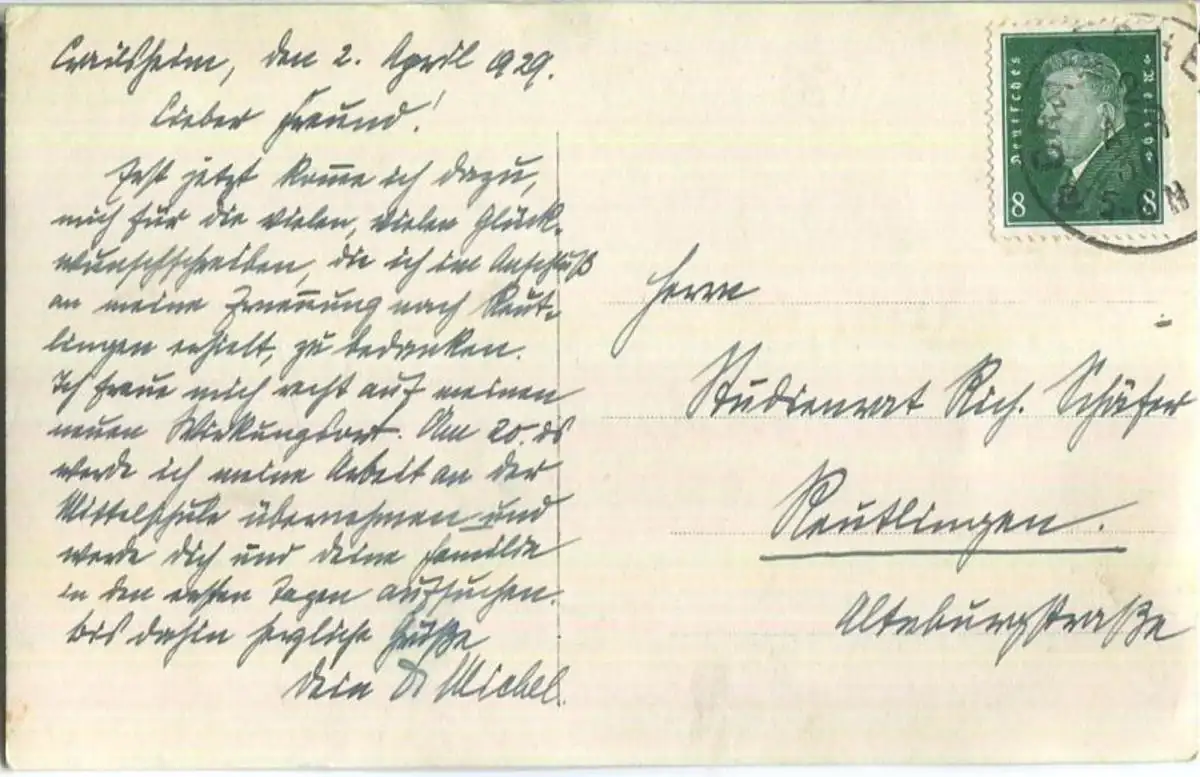 Crailsheim, den 2. April 1929.
Lieber Freund!
Erst jetzt komme ich dazu,
mich für die vielen, vielen Glück-
wunschschreiben, die ich im Anschluß
an meine Ernennung nach Reut-
lingen erhielt, zu bedanken.
Ich freue mich recht auf meinen
neuen Wirkungsort. Am 20. ds
werde ich meine Arbeit an der
Mittelschule übernehmen und
werde Dich und Deine Familie
in den ersten Tagen aufsuchen.
Bis dahin herzliche Grüße
Dein Michel.
Deutsches Reich
8 8
Herrn
Studienrat Rich. Schäfer
Reutlingen.
Alteburgstraße